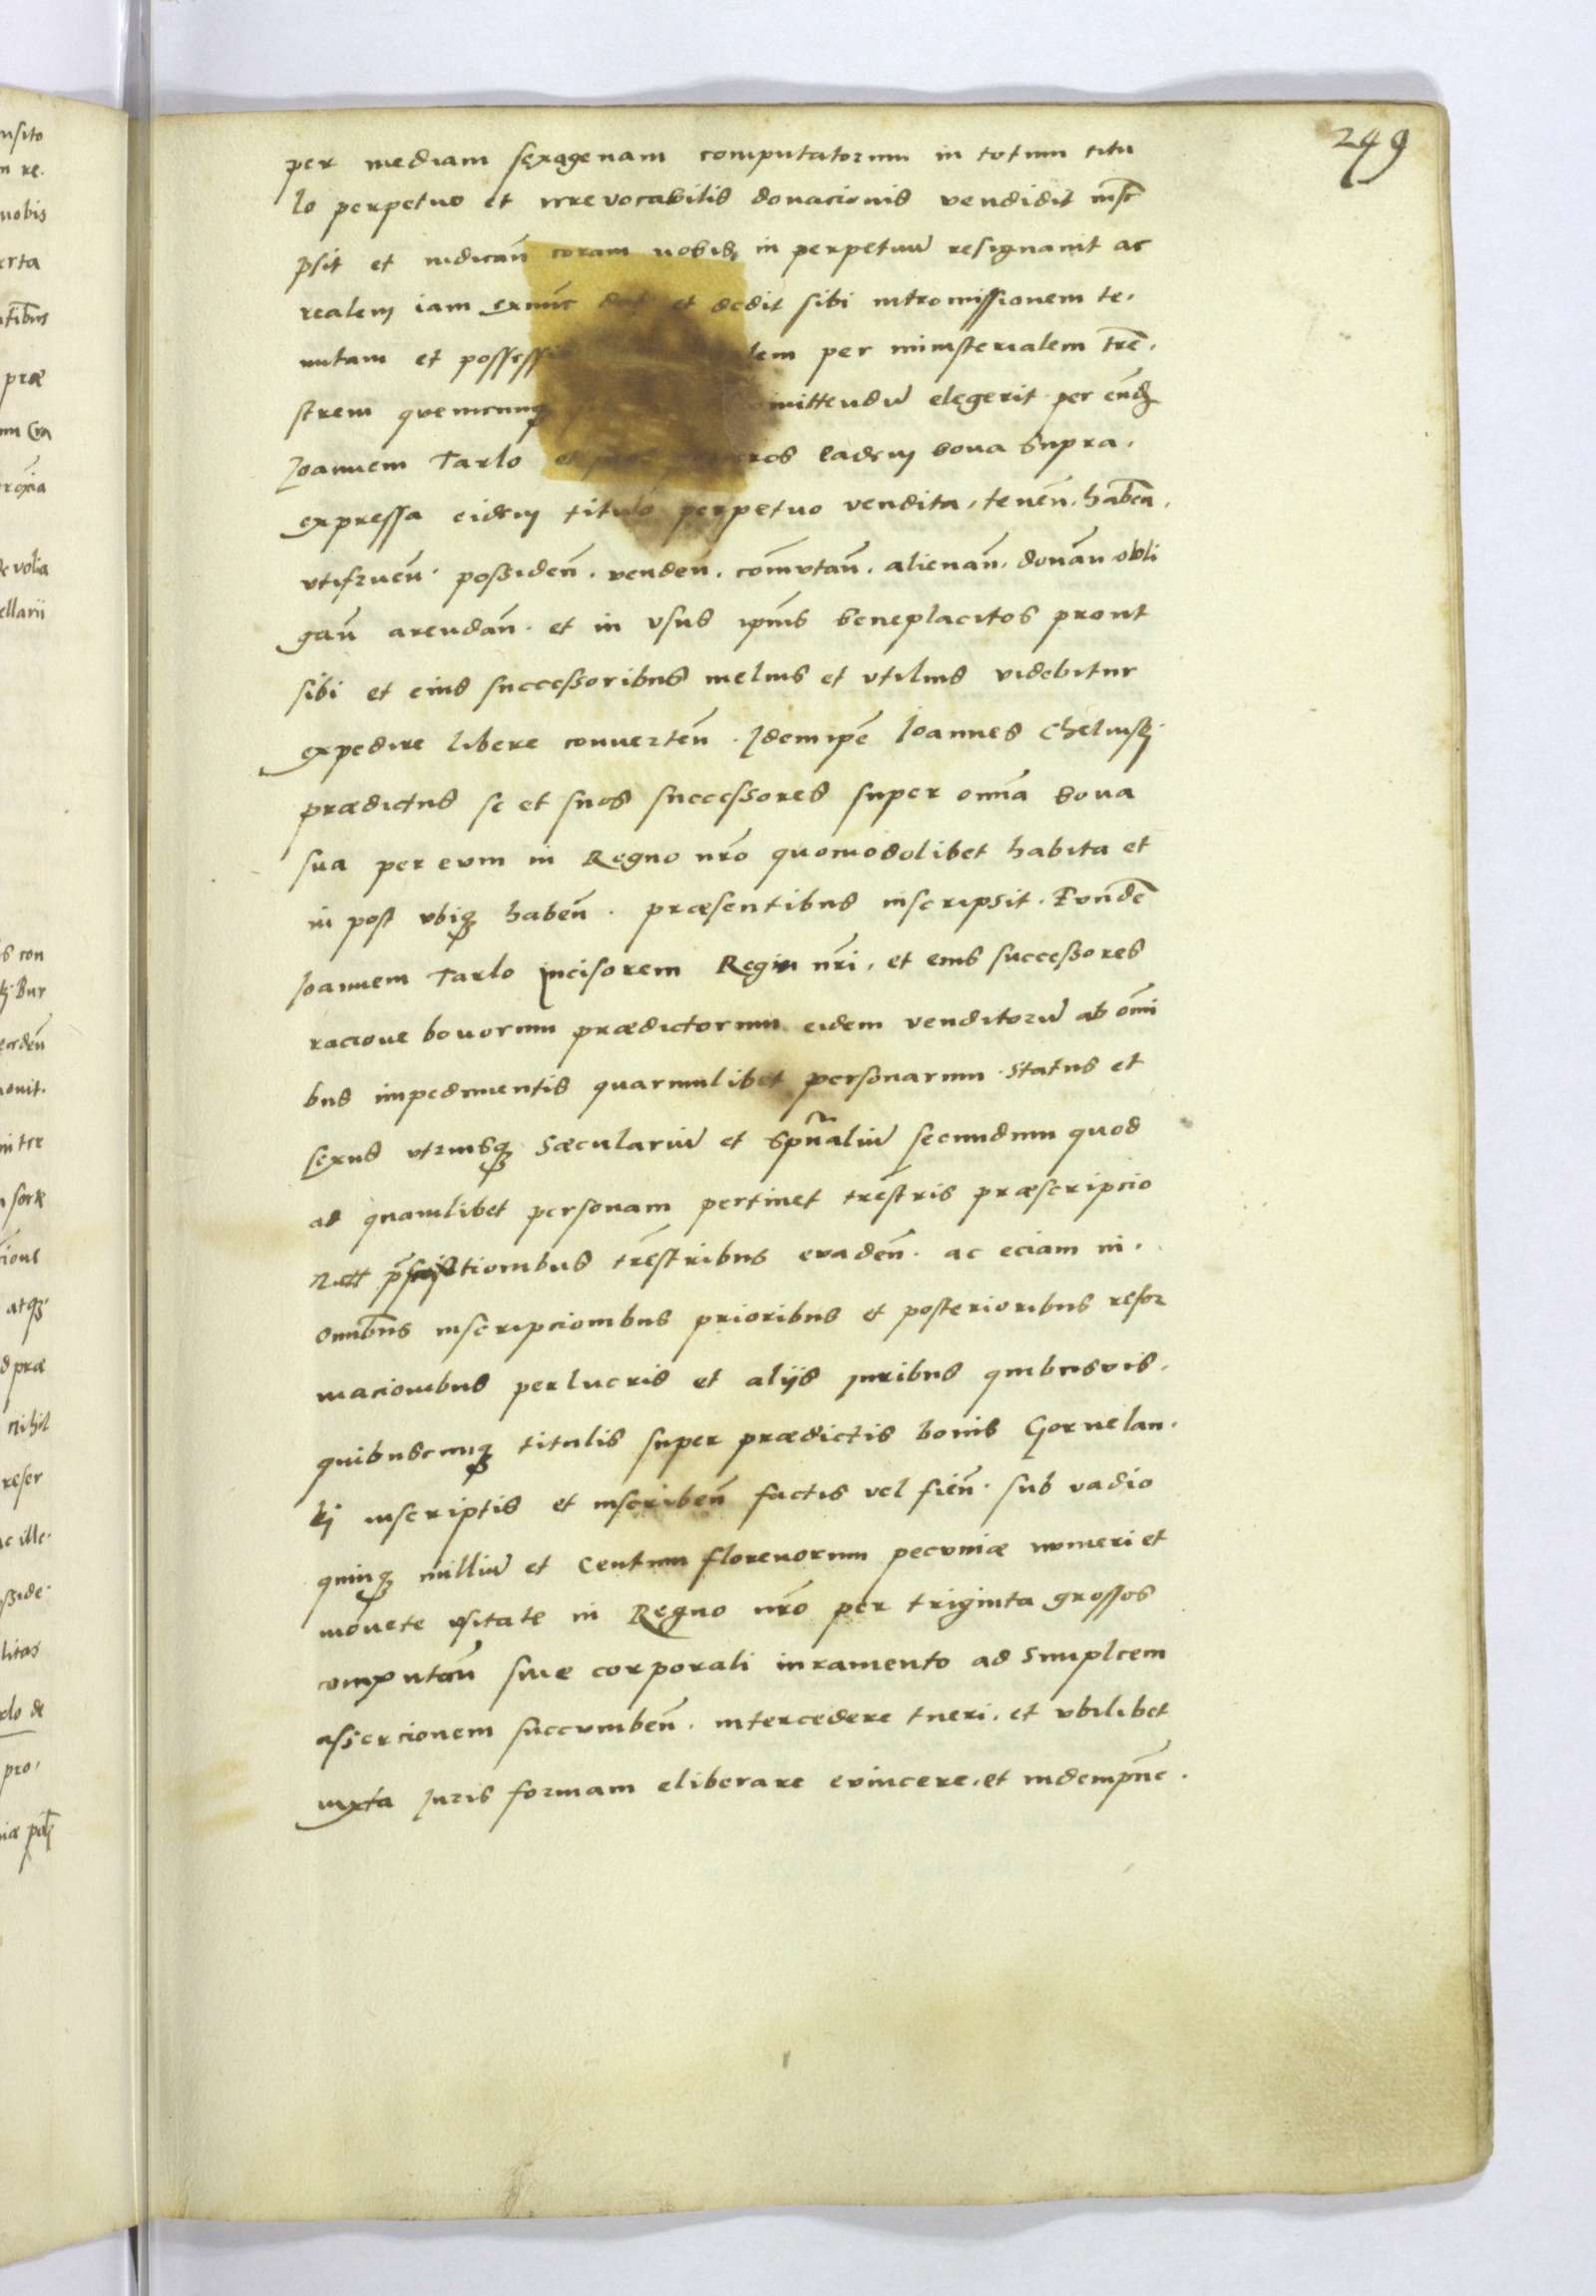 249
per mediam sexagenam computatorum in totum titu
lo perpetuo et irrevocabilis donacionis vendidit insc̄
p̄sit et iudican̄ coram nobis, in perpetuū resignauit ac
realem iam exnūc dat et dedit sibi intromissionem te,
nutam et possessi lem per ministerialem trē,
strem quemcunqꝫ mittendū elegerit per eūdꝫ
Joannem Tarlo et eros eadem bona supra,
expressa eidem titulo perpetuo vendita, tenen̄, haben̄,
vtifruen̄. possiden̄. venden̄. com̄vtan̄. alienan̄. donan̄ obli
gan̄ arendan̄. et in vsus ip̄ius beneplacitos prout
sibi et eius successoribus melius et vtilius videbitur
expedire libere conuerten̄. Idem ip̄e Ioannes Chelmskj
prædictus se et suos successores super om̄ia bona
sua per eum in Regno nr̄o quomodolibet habita et
in post vbiqꝫ haben̄. præsentibus inscripsit. Eunde̅
Joannem Tarlo incisorem Regin nr̄i, et eius successores
racione bonorum prædictorum eidem venditorū ab om̄i
bus impedimentis quarumlibet personarum status et
sexus vtriusqꝫ sæculariū et sp̄ualiū secundum quod
ad quamlibet personam pertinet trēstris præscripcio
tionibus trēstribus evaden̄. ac eciam in,
omnib̄us inscripcionibus prioribus et posterioribus refor
macionibus perlucris et alijs iuribus quibusvis,
quibuscunqꝫ titulis super prædictis bonis Gornelan,
kj inscriptis et inscriben̄ factis vel fien̄. sub vadio
quinqꝫ milliū et Centum florenorum pecuniæ numeri et
monete vsitate in Regno nr̄o per triginta grossos
computan̄ sine corporali iuramento ad simplcem
assercionem succumben̄. intercedere tueri, et vbilibet
iuxta Juris formam eliberare evincere, et indempn̄e.